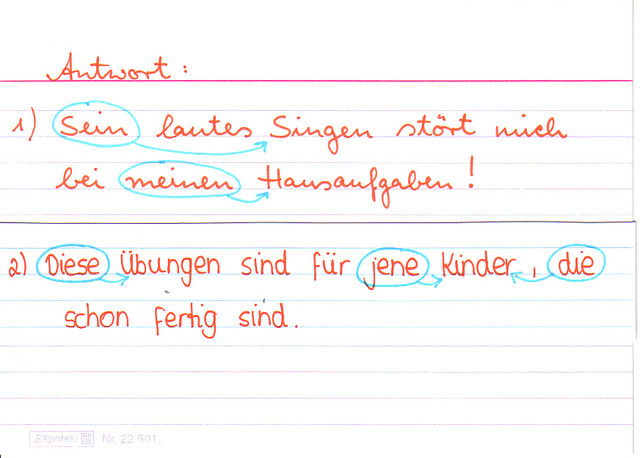 Antwort:
1) Sein lautes Singen stört mich
bei meinen Hausaufgaben!
2) Diese Übungen sind für jene Kinder, die
schon fertig sind.
Brunnen Nr. 22 601..